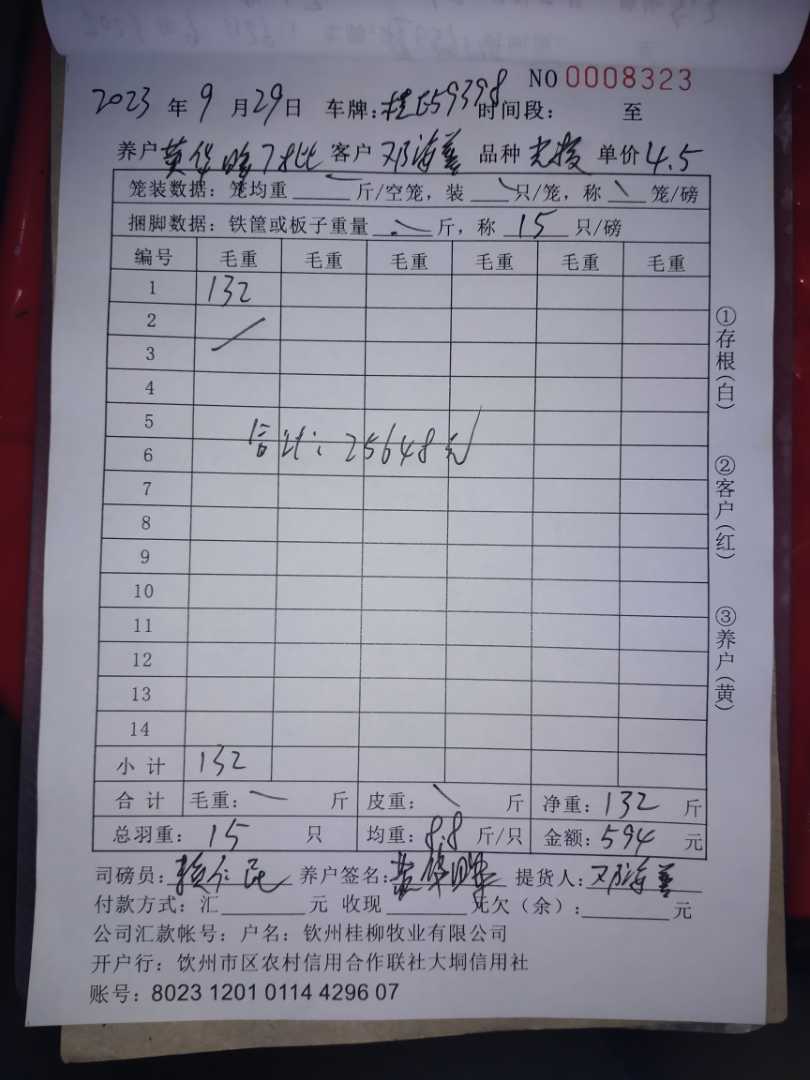 NO 0008323
2023 年 9 月 29 日 车牌: 桂 59398 时间段: 至
养户 客户 邓海善 品种 单价 4.5
笼装数据: 笼均重 斤/空笼, 装 只/笼, 称 笼/磅
捆脚数据: 铁筐或板子重量 斤, 称 15 只/磅
编号 毛重 毛重 毛重 毛重 毛重 毛重
1 132
2
3
4
5
合计: 25648元
6
7
8
9
10
11
12
13
14
小计 132
合计 毛重: 斤 皮重: 斤 净重: 132 斤
总羽重: 15 只 均重: 8.8 斤/只 金额: 594 元
司磅员: 养户签名: 提货人: 邓海善
付款方式: 汇 元 收现 元欠 (余): 元
公司汇款帐号: 户名: 钦州桂柳牧业有限公司
开户行: 钦州市区农村信用合作联社大垌信用社
账号: 8023 1201 0114 4296 07
①存根(白)
②客户(红)
③养户(黄)